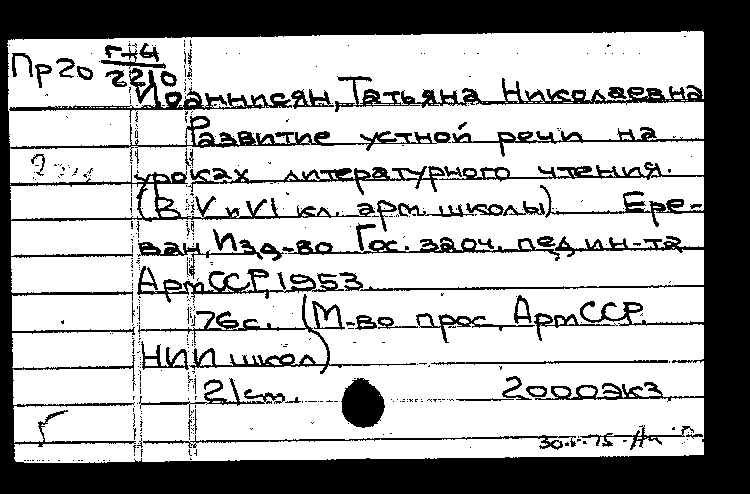 Пр20 Г-4/2210
Иоаннисян, Татьяна Николаевна
Развитие устной речи на
уроках литературного чтения.
(В V и VI кл. арм. школы). Ере-
ван, Изд-во Гос. заоч. пед. ин-та
АрмССР, 1953.
76с. (М-во прос. АрмССР.
НИИ школ).
21см. 2000экз.